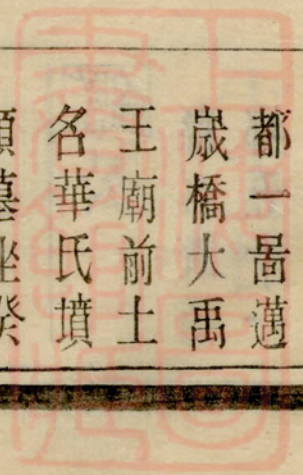 都一啚邁
嵗橋大禹
王廟前土
名華氏墳
墓坐癸